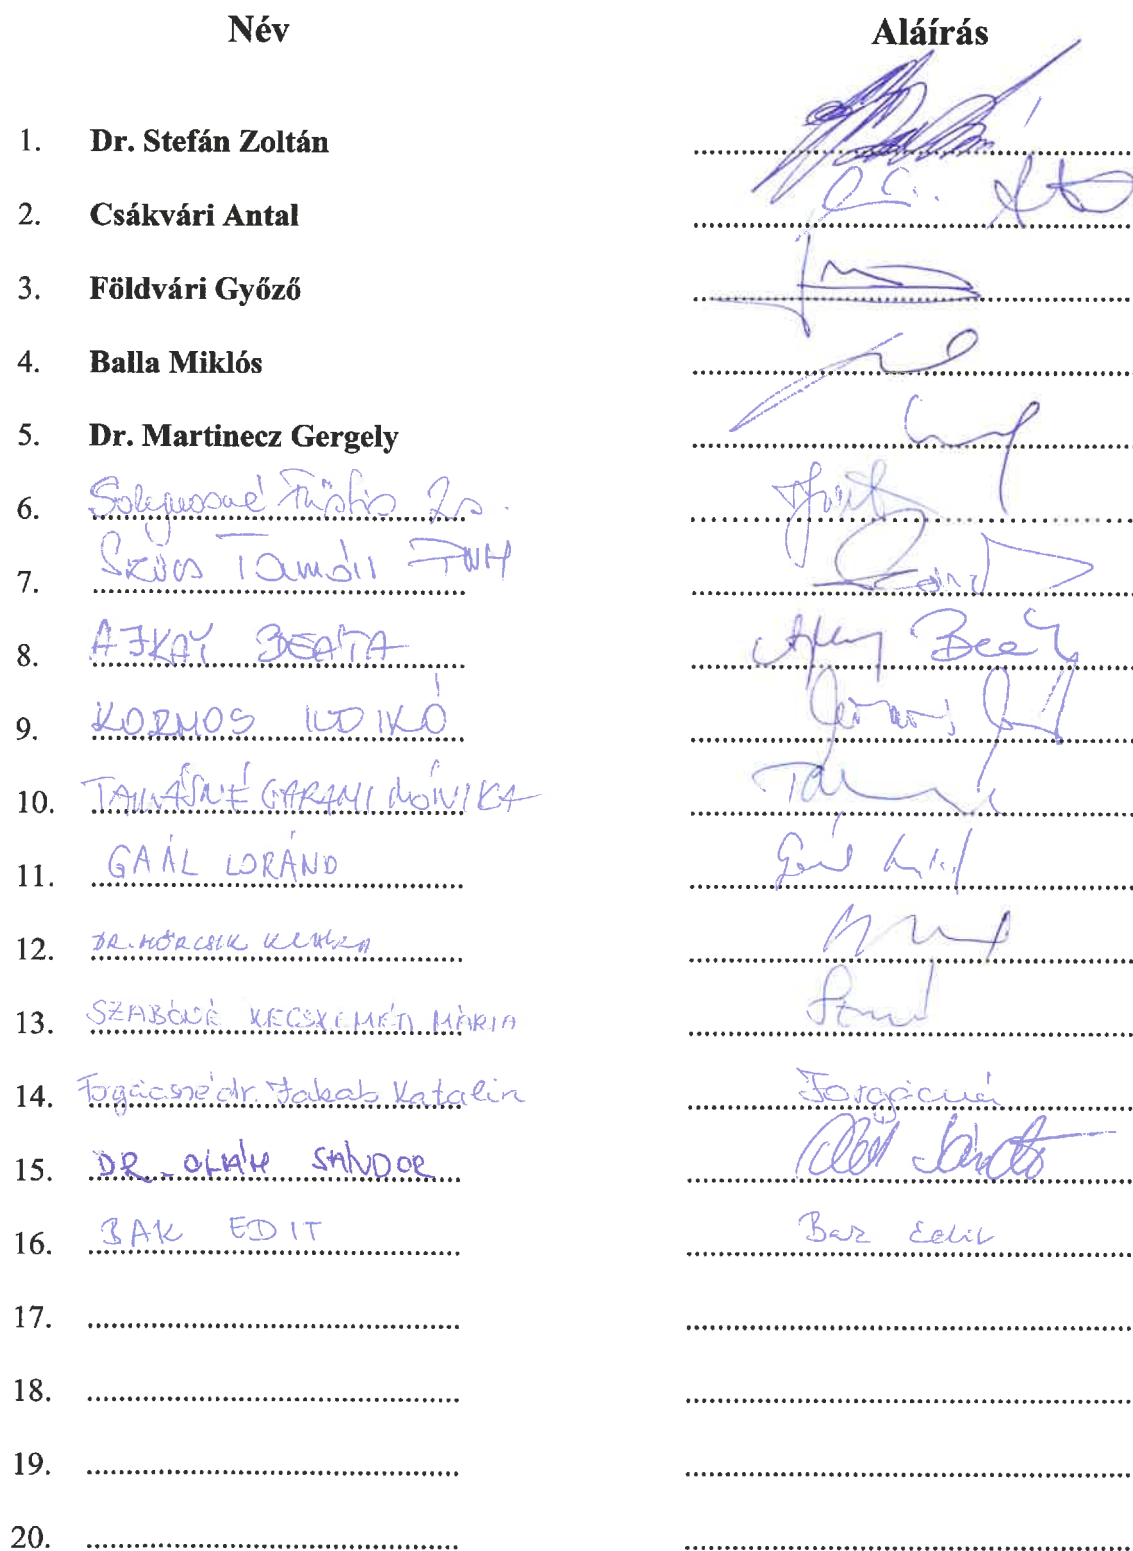 Név Aláírás
1. Dr. Stefán Zoltán
2. Csákvári Antal
3. Földvári Győző
4. Balla Miklós
5. Dr. Martinecz Gergely
6. Zs.
7. Szűcs Tamás
8. AJKAY BEÁTA
9. KORMOS ILDIKÓ
10. GARAMI MÓNIKA
11. GAÁL LORÁND
12. DR. HÖRCSIK
13. SZABÓNÉ KECSKEMÉTI MÁRIA
14. Forgácsné dr. Jakab Katalin Forgácsné
15. DR. OLÁH SÁNDOR Oláh Sándor
16. BAK EDIT Bak Edit
17.
18.
19.
20.